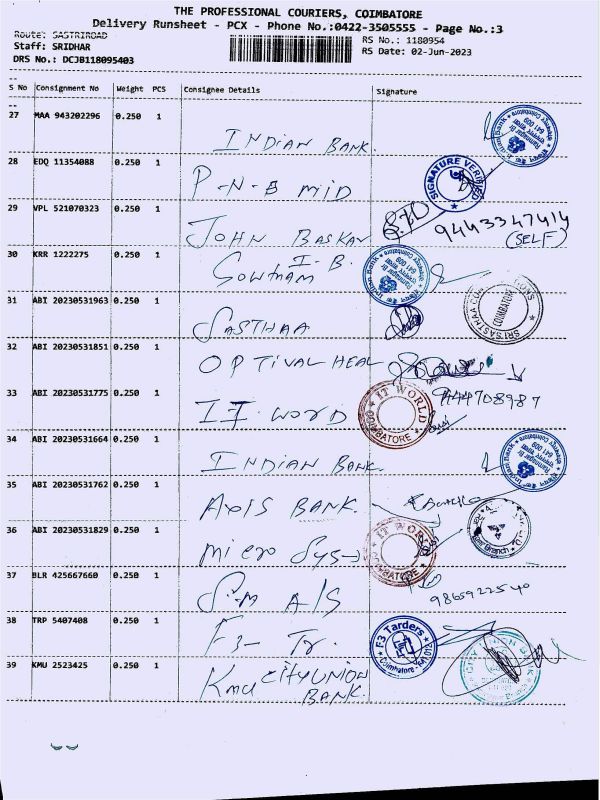 THE PROFESSIONAL COURIERS, COIMBATORE
Delivery Runsheet - PCX - Phone No.:0422-3505555 - Page No.:3
Route: SASTRIROAD
RS No.: 1180954
Staff: SRIDHAR
RS Date: 02-Jun-2023
DRS No.: DCJB118095403
S No Consignment No Weight PCS Consignee Details Signature
27 MAA 943202296 0.250 1
INDIAN BANK.
28 EDQ 11354088 0.250 1
P-N-B MID
SIGNATURE VERIFIED
29 VPL 521070323 0.250 1
JOHN BASKAR
9443347414
(SELF)
30 KRR 1222275 0.250 1
I.B.
GOWTHAM
31 ABI 20230531963 0.250 1
SASTHAA
COIMBATORE
32 ABI 20230531851 0.250 1
OPTIVAL HEAL
33 ABI 20230531775 0.250 1
I.T. WORD
IT WORLD
COIMBATORE
944708987
34 ABI 20230531664 0.250 1
INDIAN BANK.
35 ABI 20230531762 0.250 1
AXIS BANK.
36 ABI 20230531829 0.250 1
MICRO SYS
IT WORLD
COIMBATORE
37 BLR 425667660 0.250 1
S.M A/S
9865922540
38 TRP 5407408 0.250 1
F3- Tr.
F3 Tarders
Coimbatore
39 KMU 2523425 0.250 1
KMU CITY UNION
BANK.